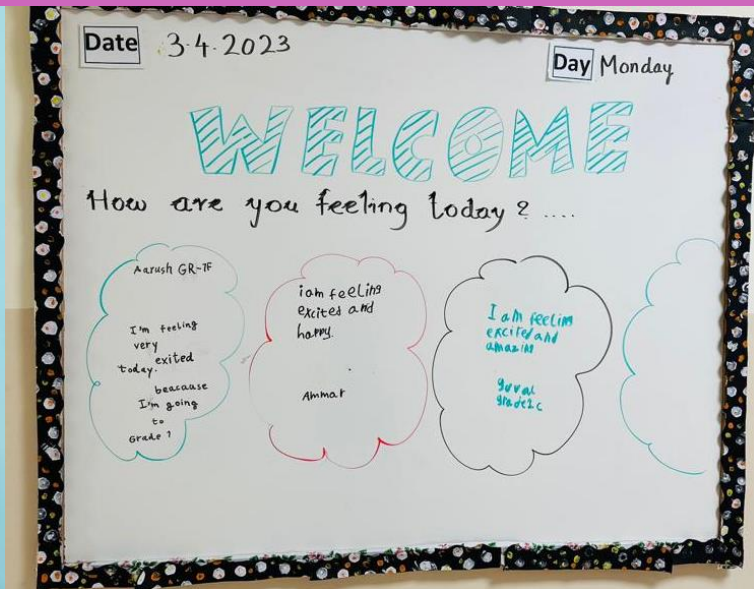 Date 3.4.2023
Day Monday
WELCOME
How are you feeling today? ....
Aarush GR-7F
I'm feeling
very
exited
today.
beacause
I'm going
to
Grade 7
iam feeling
excited and
harry.
Ammar
I am feelim
excited and
amazing
grade2c